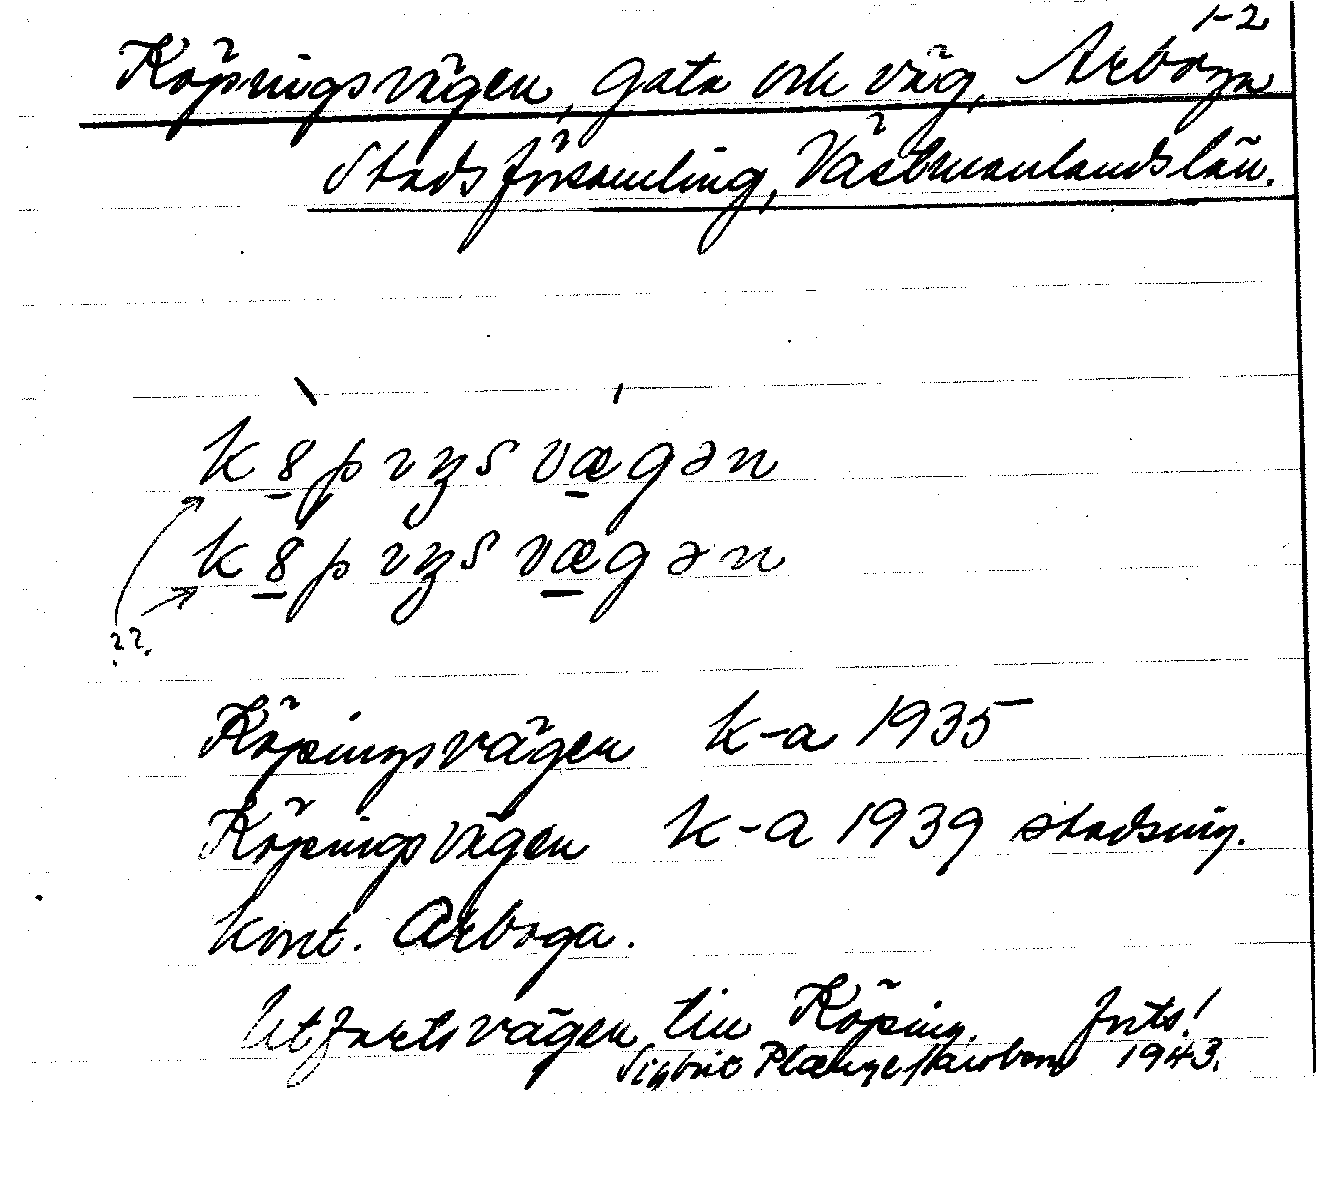 1-2
Köpingsvägen, gata och väg, Arboga
Stadsförsamling, Västmanlands län.
k8pıŋsvægən
k8pıŋsvægən
??.
Köpingsvägen k-a 1935
Köpingsvägen k-a 1939 stadsing.
kont. Arboga.
Utfartsvägen till Köping. forts!
Sigbrit Plænge Jacobson 1943.